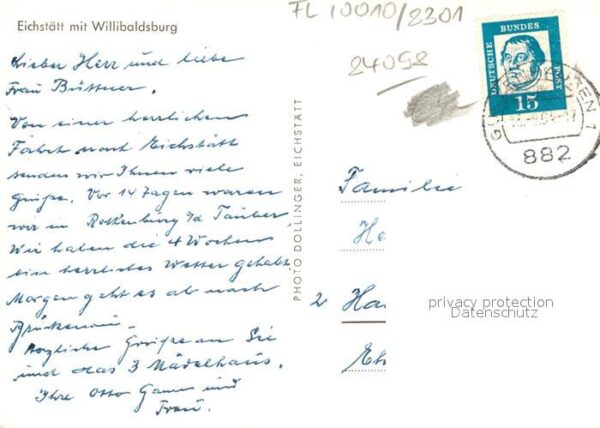 Eichstätt mit Willibaldsburg
FL 10010/2301
24098
DEUTSCHE BUNDES POST
15
882
Lieber Herr und liebe
Frau Büttner,
Von einer herrlichen
Fahrt nach Eichstätt
senden wir Ihnen viele
Grüße. Vor 14 Tagen waren
wir in Rothenburg o/d Tauber,
Wir haben die 4 Wochen
ein herrliches Wetter gehabt.
Morgen geht es ab nach
Brückenau.
Herzliche Grüße an Sie
und das 3 Mädelhaus.
Ihre Otto und
Frau.
PHOTO DOLLINGER, EICHSTÄTT
Familie
He
2 Ha
Eh
privacy protection
Datenschutz